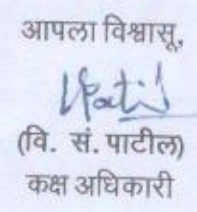 आपला विश्वासू,
(वि. सं. पाटील)
कक्ष अधिकारी